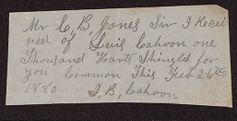 Mr C, B, Jones Sir I Recei
ved of Cahoon one
Thousand Hearts Shingls for
you Common This Feb 26th
1880
J, B, Cahoon